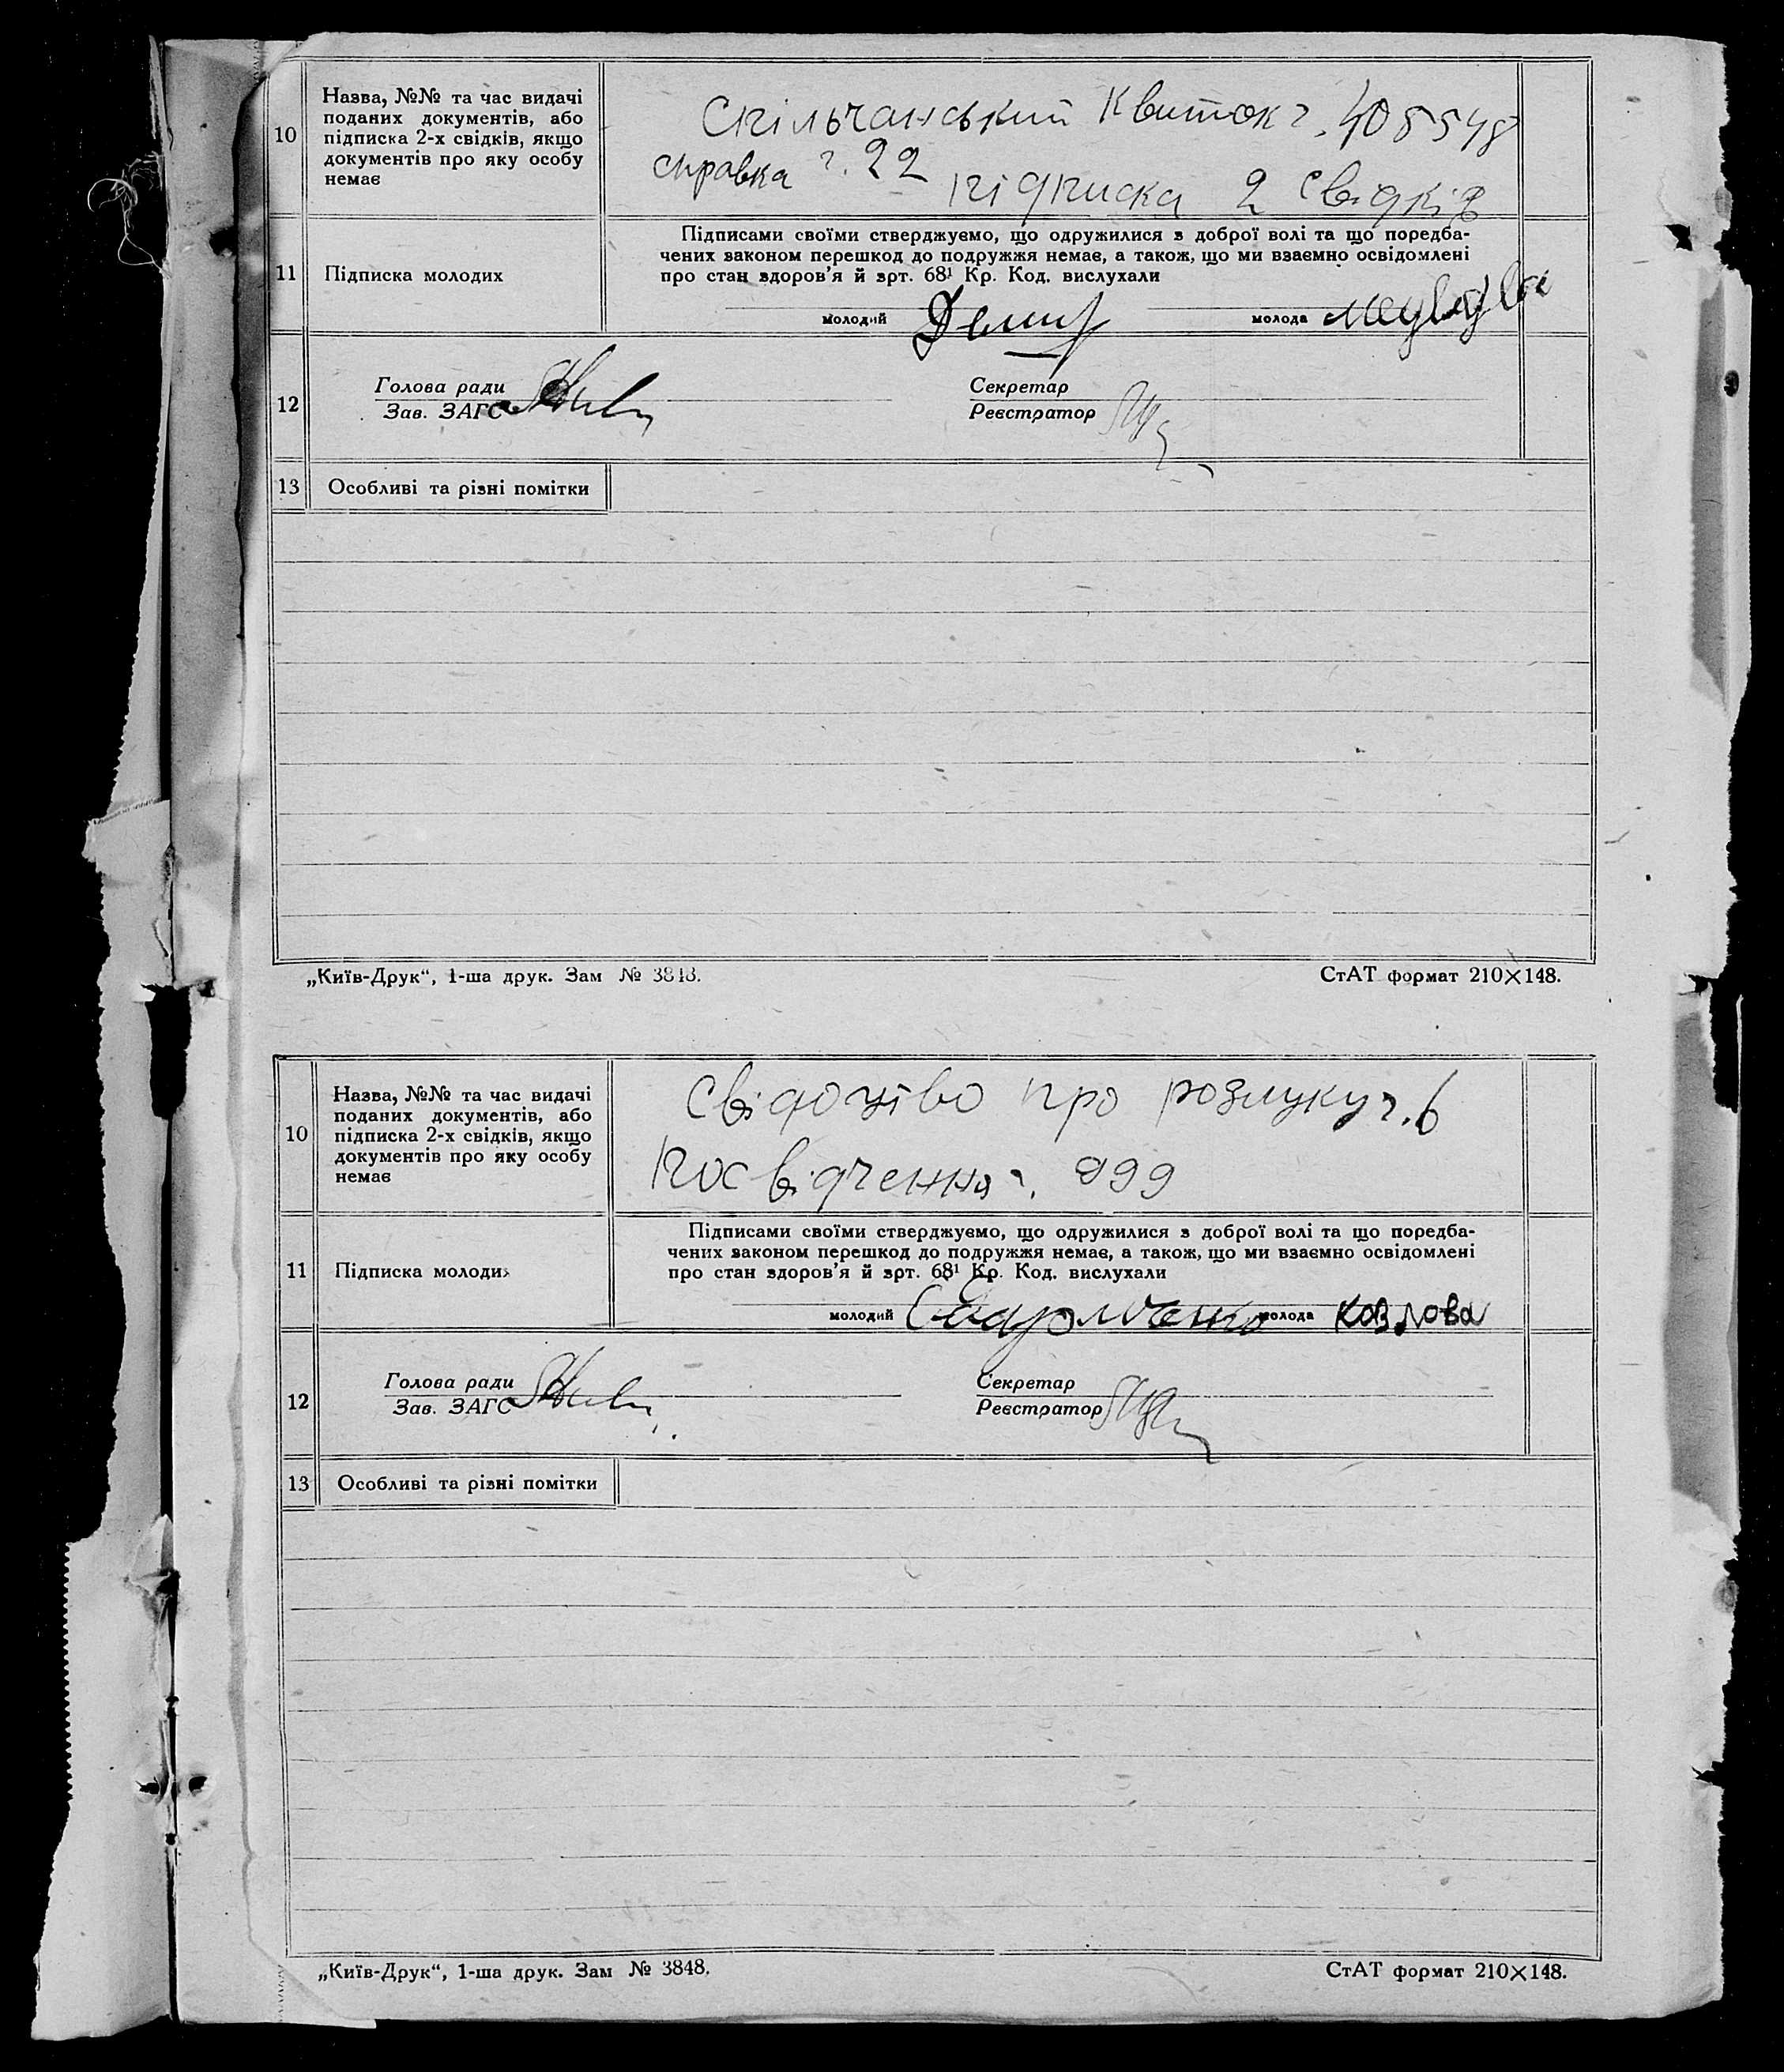 10
Назва, №№ та час видачі
поданих документів, або
підписка 2-х свідків, якщо
документів про яку особу
немає
Спільчанський Квиток ч. 408548
справка ч. 22
підписка 2 свідків
11
Підписка молодих
Підписами своїми стверджуємо, що одружилися з доброї волі та що поредба-
чених законом перешкод до подружжя немає, а також, що ми взаємно освідомлені
про стан здоров'я й арт. 68¹ Кр. Код. вислухали
молодий
молода
12
Голова ради
Зав. ЗАГС
Секретар
Реєстратор
13
Особливі та різні помітки
„Київ-Друк“, 1-ша друк. Зам № 3848.
СтАТ формат 210×148.
10
Назва, №№ та час видачі
поданих документів, або
підписка 2-х свідків, якщо
документів про яку особу
немає
Свідоцтво про розлуку ч. 6
Посвідчення ч. 999
11
Підписка молодих
Підписами своїми стверджуємо, що одружилися з доброї волі та що поредба-
чених законом перешкод до подружжя немає, а також, що ми взаємно освідомлені
про стан здоров'я й арт. 68¹ Кр. Код. вислухали
молодий молода Козлова
12
Голова ради
Зав. ЗАГС
Секретар
Реєстратор
13
Особливі та різні помітки
„Київ-Друк“, 1-ша друк. Зам № 3848.
СтАТ формат 210×148.